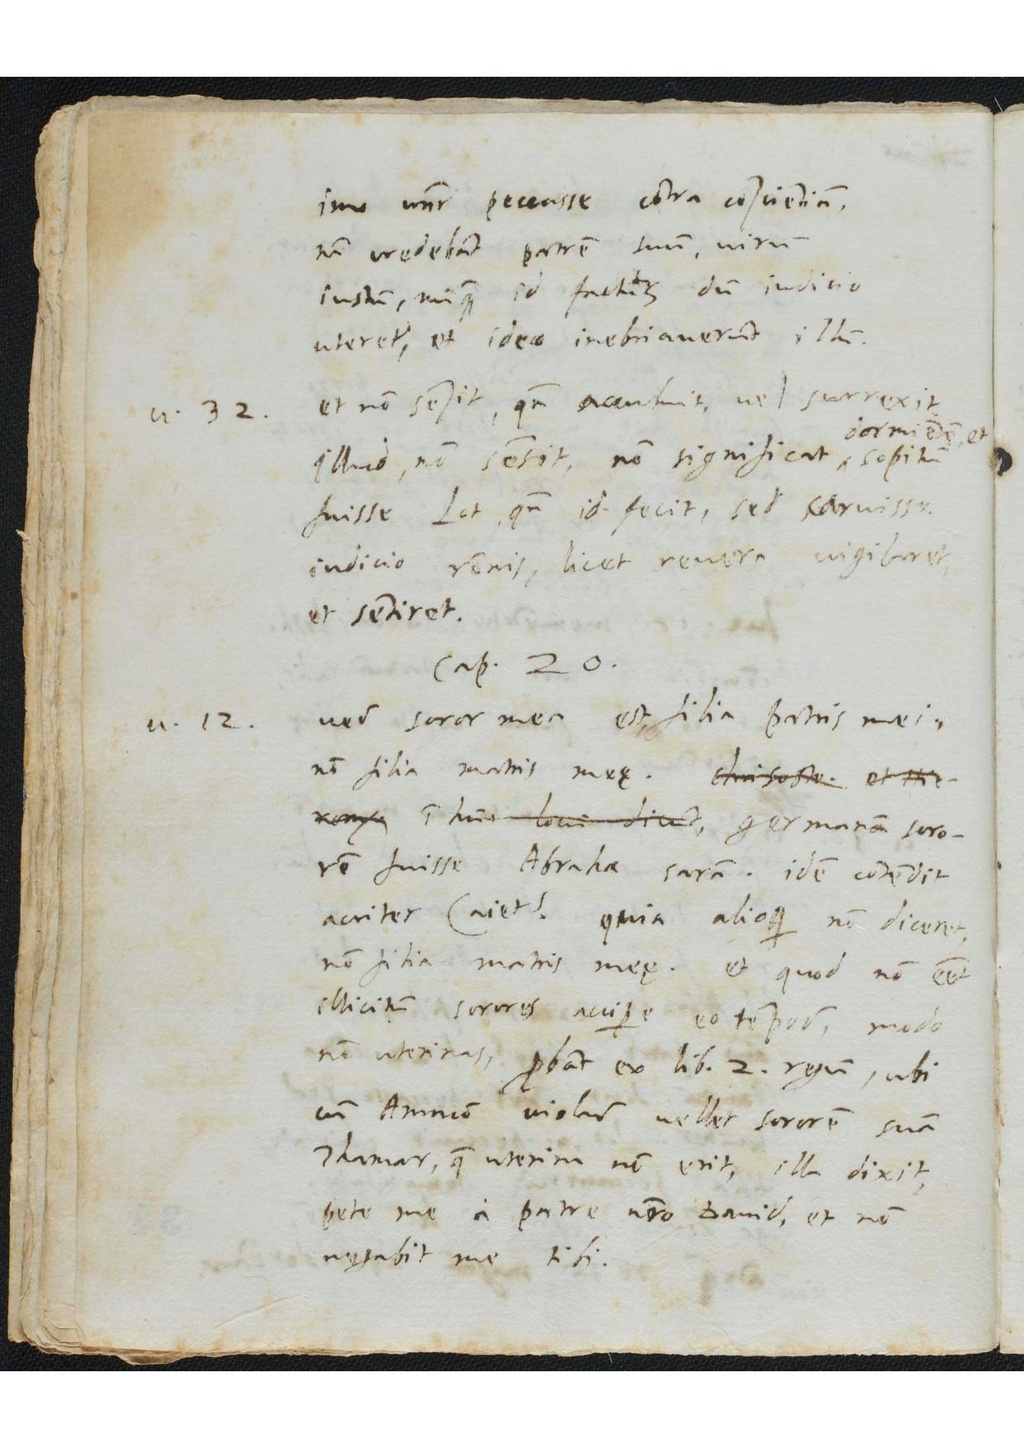 imo vr̃ peccasse cõtra cõsciẽtiã,
nã credebãt patrẽ suũ, uirũ
iustũ, nũq̃ id facturũ dũ iudicio
uteret², et ideo inebriauerũt illũ.
u. 32. et nõ sẽsit, qñ accubuit, uel surrexit
dormiẽtẽ, et
illud, nõ sẽsit, nõ significat ‸ sopitũ
fuisse Lot, qñ id fecit, sed caruisse
iudicio rõnis, licet reuera uigilaret,
et sẽtiret.
Cap. 20.
u. 12. uere soror mea est, filia patris mei,
nõ filia matris meę. chrisosto. et Hie-
rony. ĩ hũc locũ dicũt, germanã soro-
rẽ fuisse Abrahæ sarã. idẽ cõtẽdit
acriter Caiet. quia alioq̃ nõ diceret,
nõ filia matris meę. et quod nõ eẽt
illicitũ sorores accipe eo tẽpore, modo
nõ uterinas, p̱bãt ex lib. 2. regũ, ubi
cũ Amnõ uiolare uellet sororẽ suã
Thamar, q̃ uterina nõ erat, illa dixit,
pete me à patre nr̃o Dauid, et nõ
negabit me tibi.